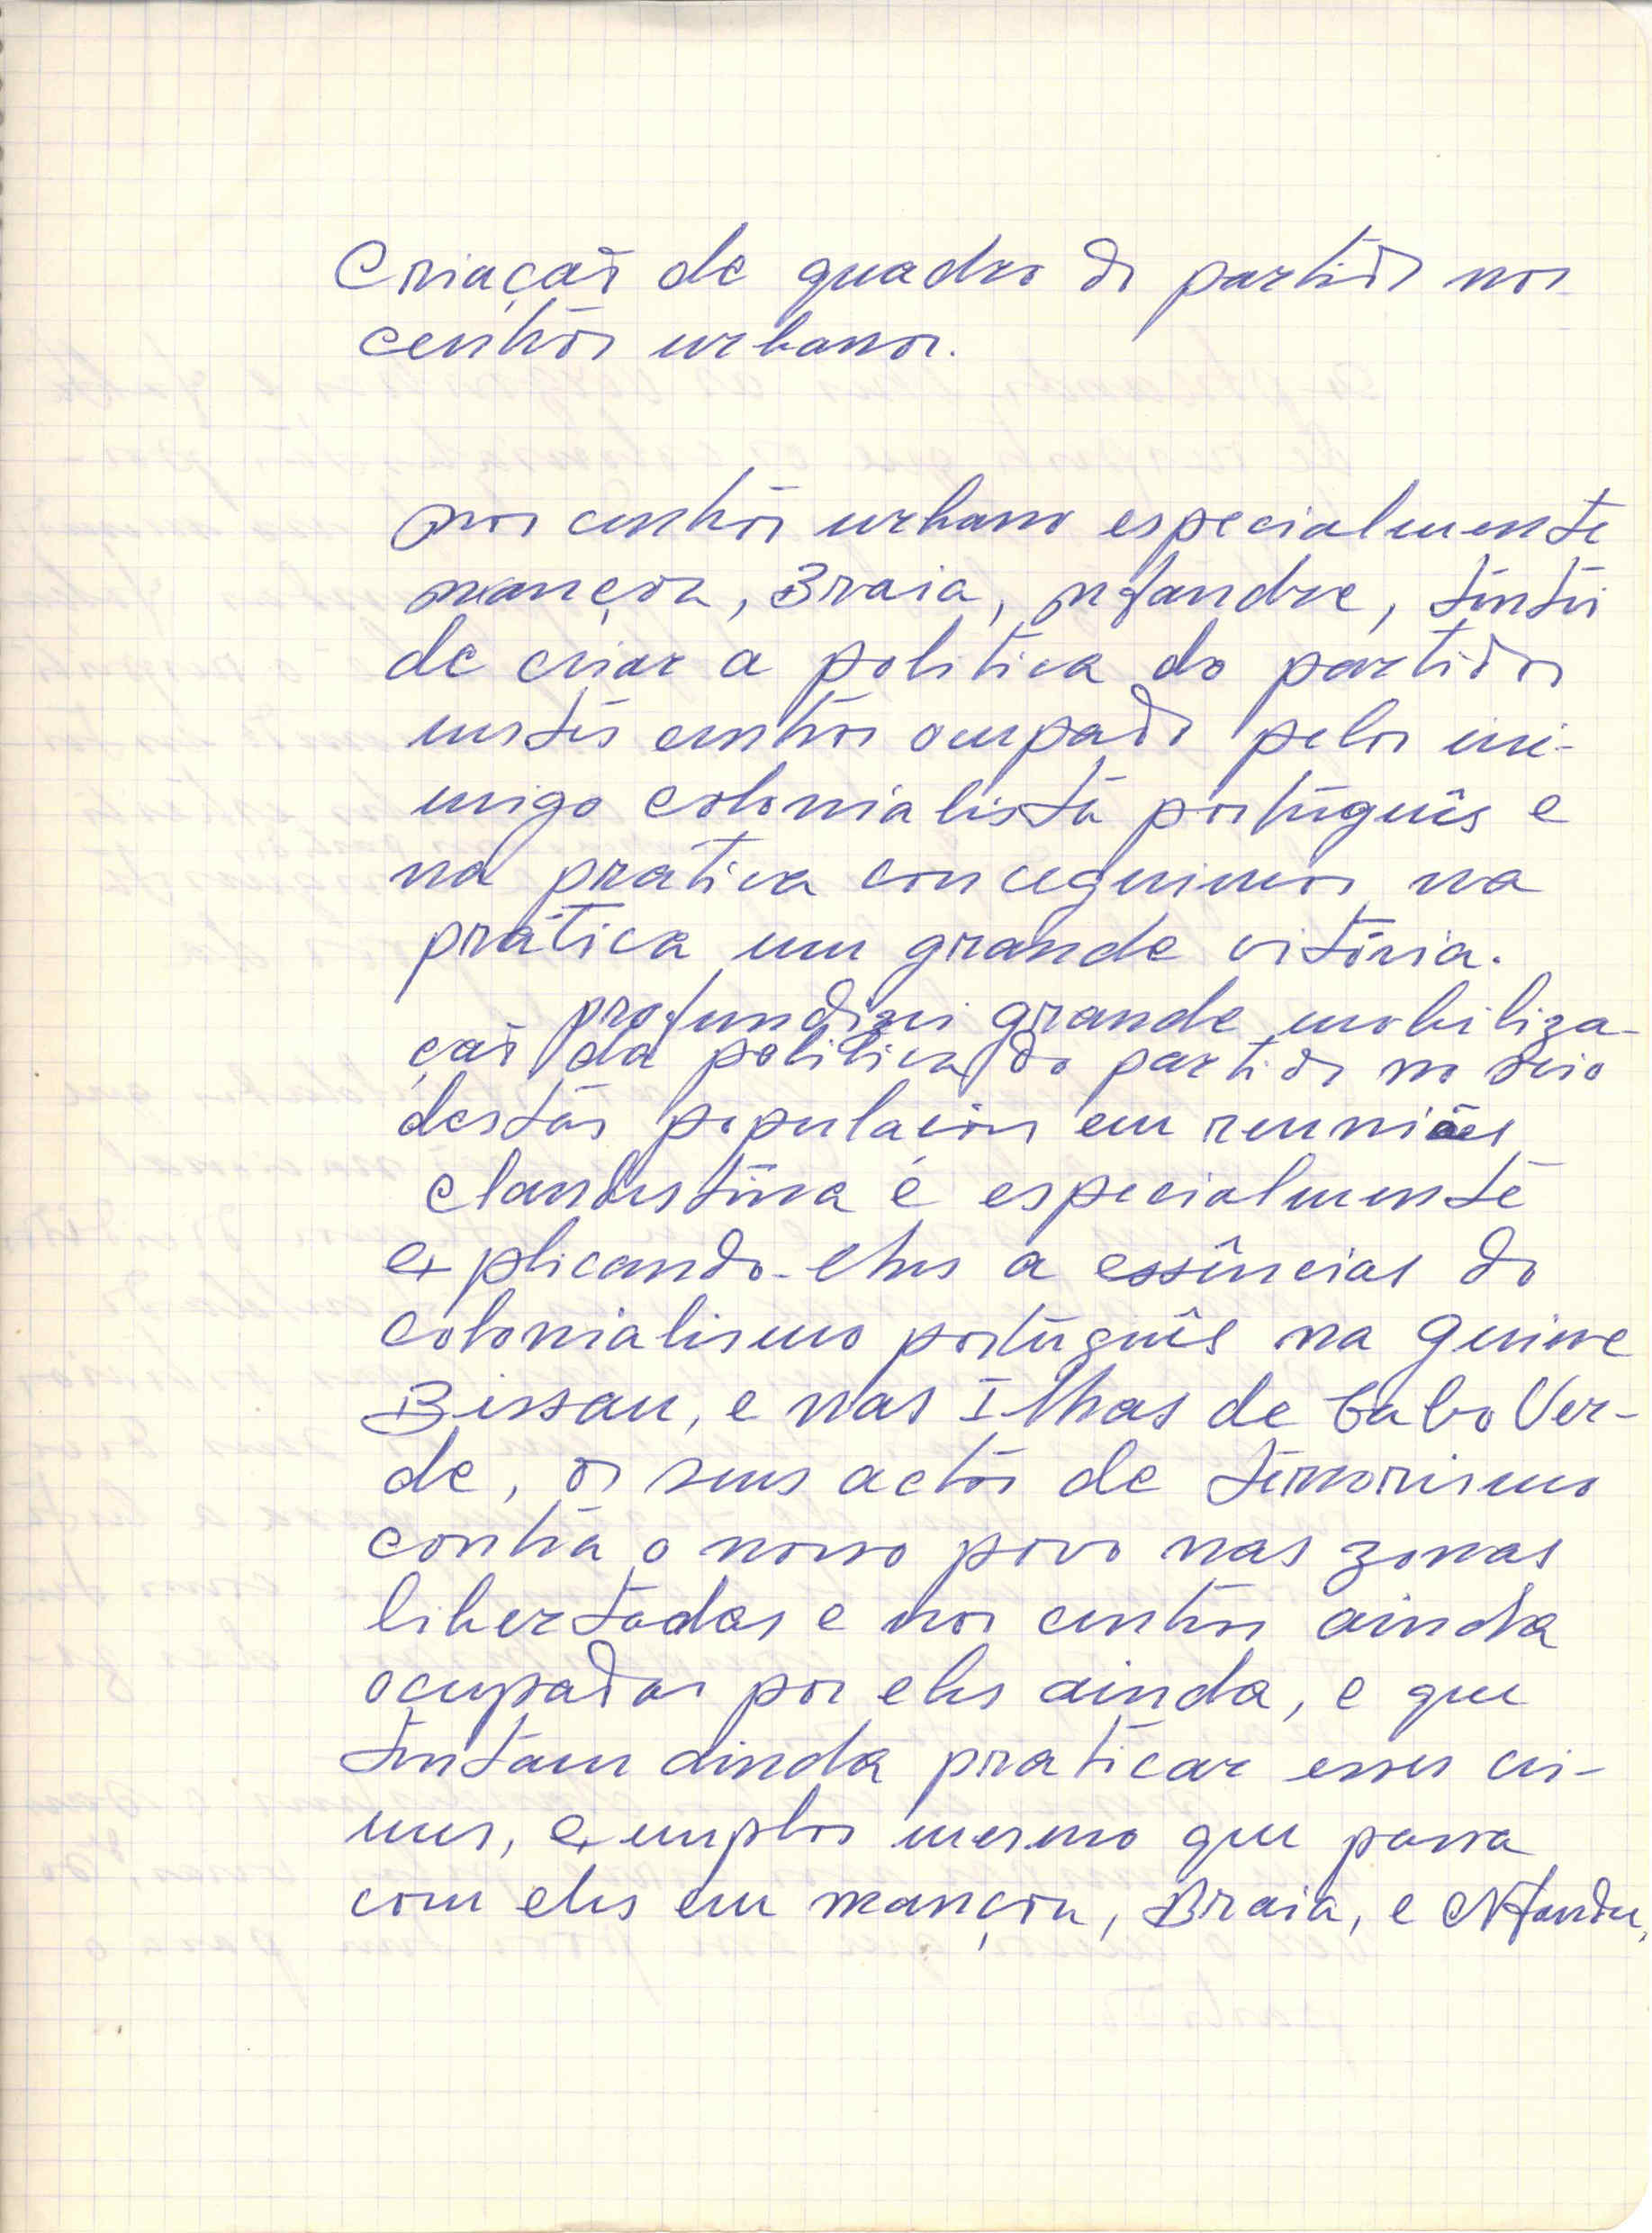 Criação de quadro do partido nos
centros urbanos.
nos centros urbano especialmente
mançoa, Braia, nfandre, tentei
de criar a politica do partidos
nestes centros ocupado pelos ini-
migo colonialista português e
na pratica conceguimos na
prática um grande vitória.
profundizei grande mobiliza-
ção da politica do partido no seio
destas populacões em reuniões
clandestina e especialmente
explicando-elhes a essências do
colonialismo português na Guine
Bissau, e nas Ilhas de Cabo Ver-
de, os seus actos de terrorismo
contra o nosso povo nas zonas
libertadas e nos centros ainda
ocupados por eles ainda, e que
tentam ainda praticar esses cri-
mes, exemplos mesmo que passa
com eles em mançoa, Braia, e Nfandre,